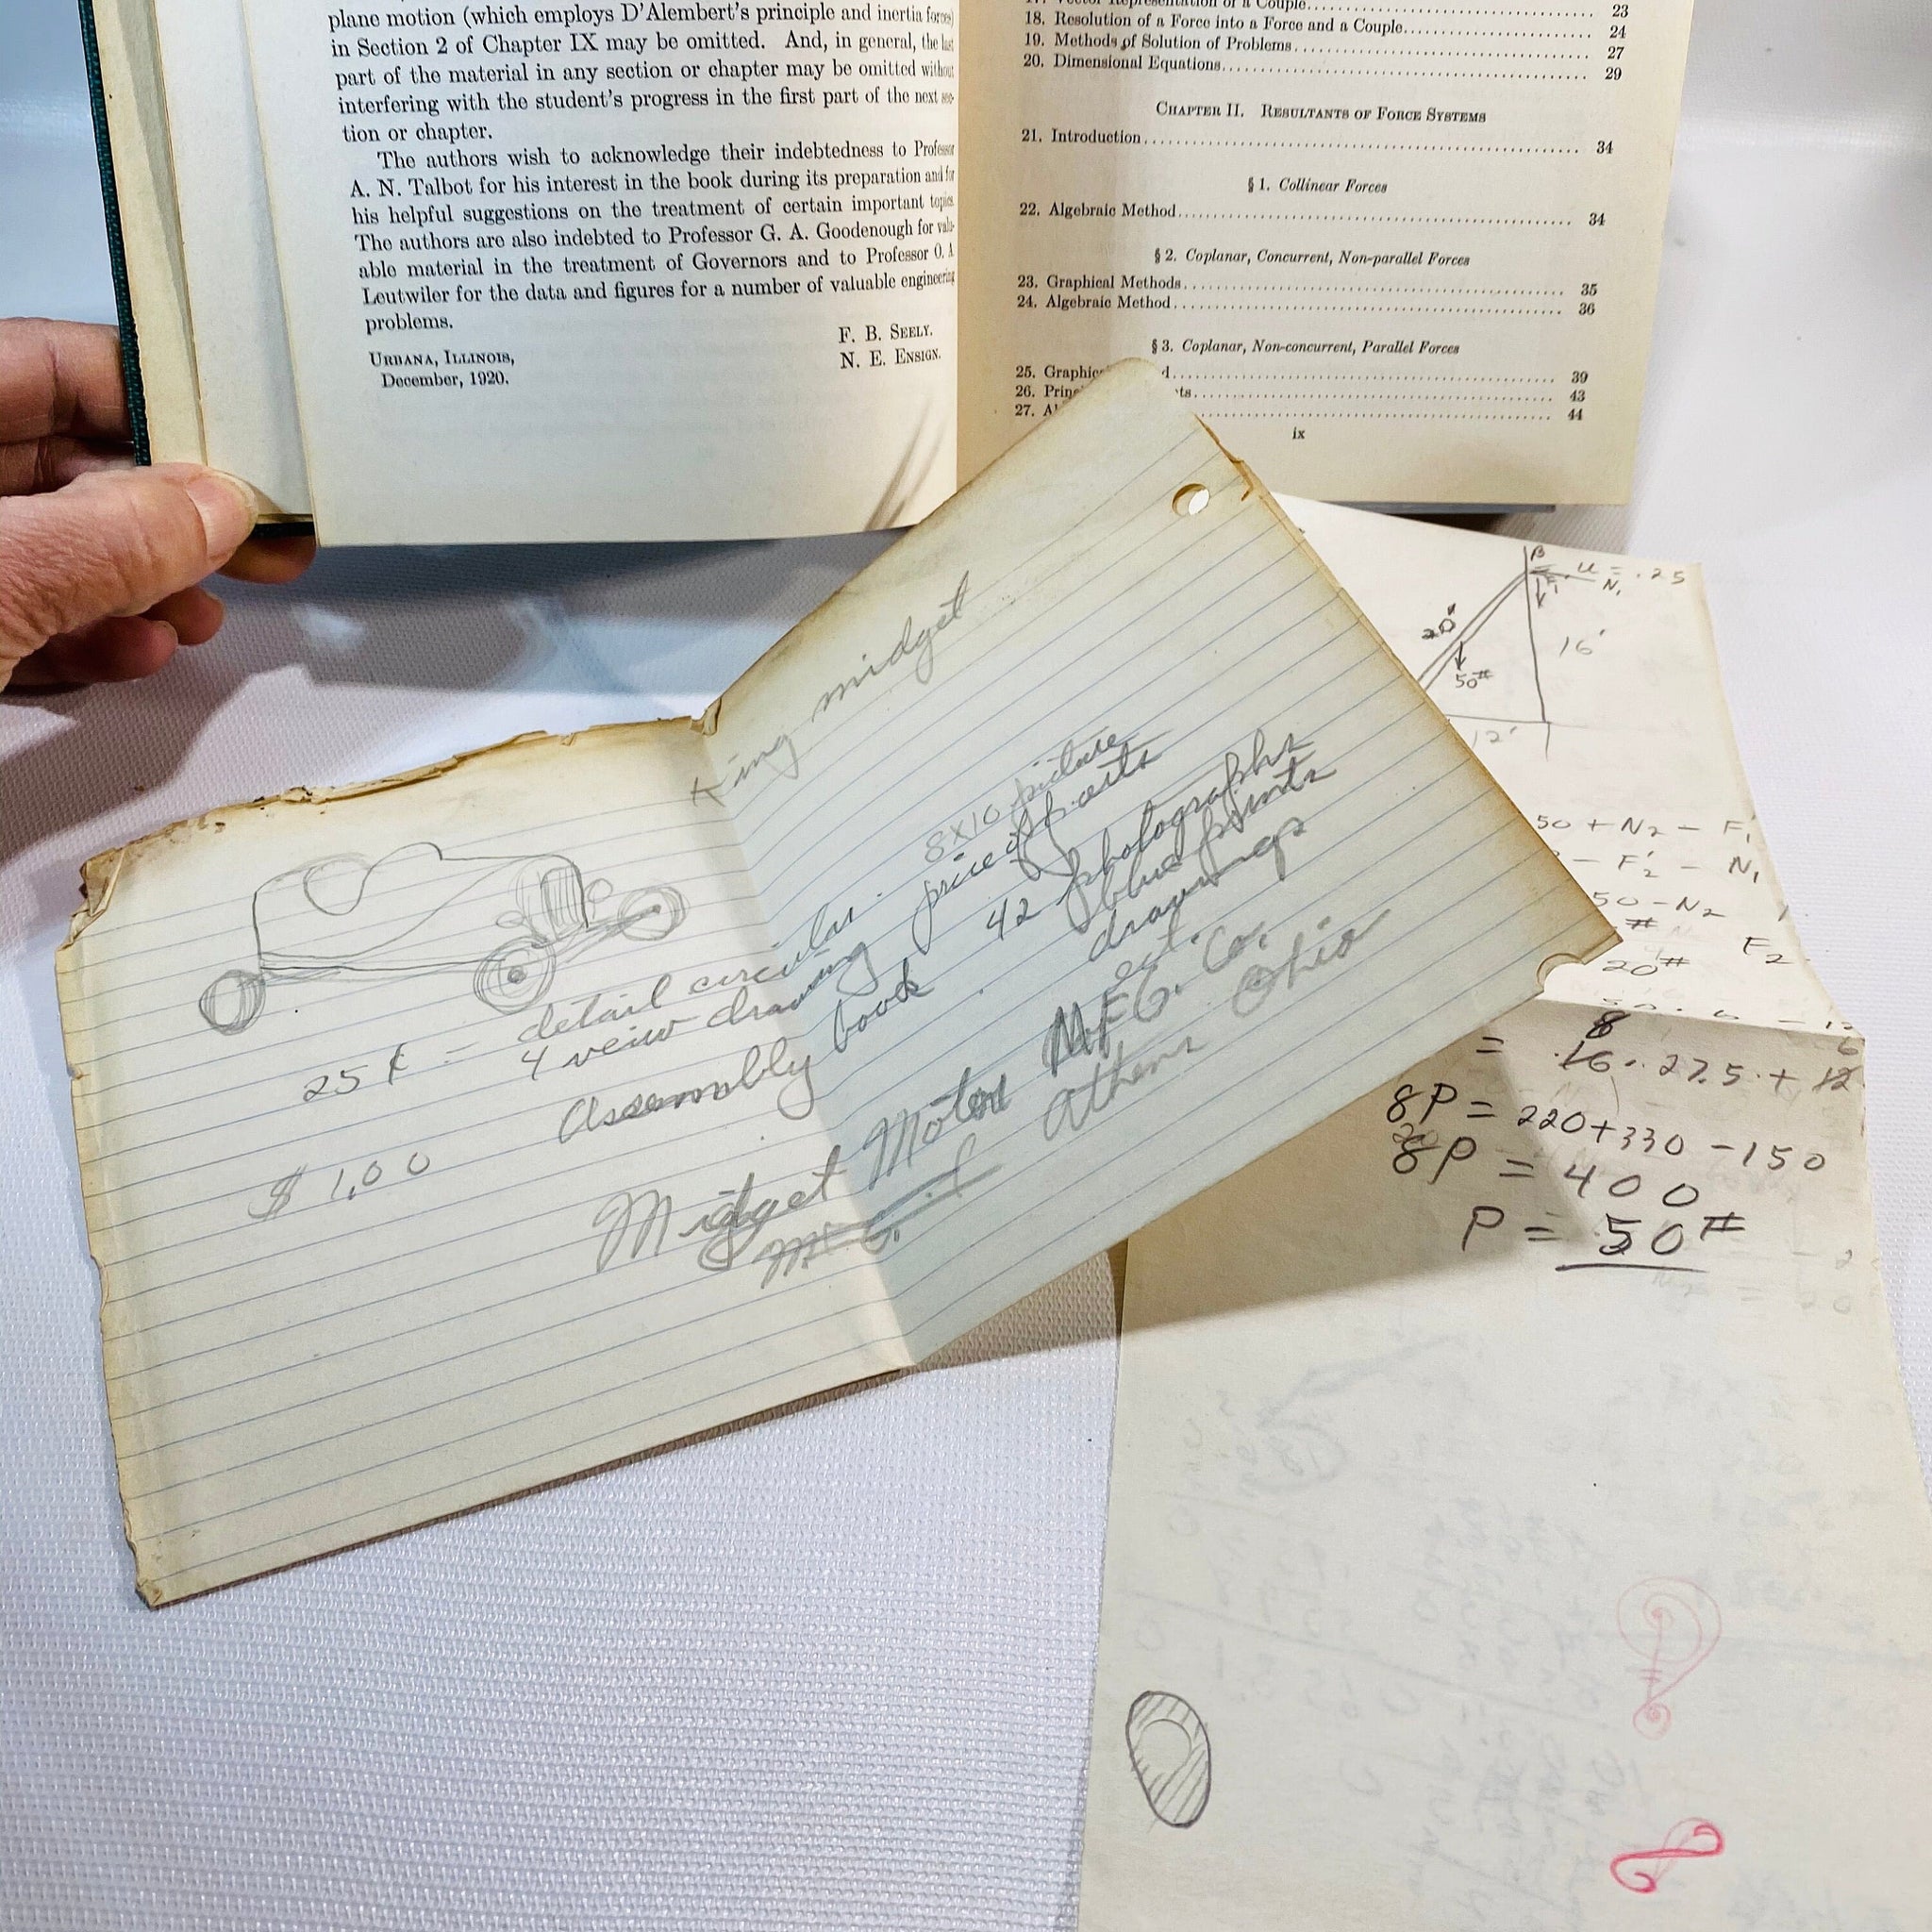 plane motion (which employs D'Alembert's principle and inertia forces)
in Section 2 of Chapter IX may be omitted. And, in general, the last
part of the material in any section or chapter may be omitted without
interfering with the student's progress in the first part of the next sec-
tion or chapter.
The authors wish to acknowledge their indebtedness to Professor
A. N. Talbot for his interest in the book during its preparation and for
his helpful suggestions on the treatment of certain important topics.
The authors are also indebted to Professor G. A. Goodenough for valu-
able material in the treatment of Governors and to Professor O. A.
Leutwiler for the data and figures for a number of valuable engineering
problems.
F. B. Seely.
N. E. Ensign.
Urbana, Illinois,
December, 1920.
17. Vector Representation of a Couple 23
18. Resolution of a Force into a Force and a Couple 24
19. Methods of Solution of Problems 27
20. Dimensional Equations 29
Chapter II. Resultants of Force Systems
21. Introduction 34
§ 1. Collinear Forces
22. Algebraic Method 34
§ 2. Coplanar, Concurrent, Non-parallel Forces
23. Graphical Methods 35
24. Algebraic Method 36
§ 3. Coplanar, Non-concurrent, Parallel Forces
25. Graphic d 39
26. Princ ts 43
27. Al 44
ix
King midget
8X10 picture
25¢ = detail circular.
4 veiw drawing price of parts
$1.00 Assembly book 42 photographs
blue prints
drawings
ect.
Midget Motor MFG. Co.
Athens Ohio
B
u = .25
N1
F1
20'
50#
16'
12'
50 + N2 - F1
- F2' - N1
50 - N2
#
20# F2
= 16. 27.5 + 12
8
6
8P = 220+330 -150
8P = 400
P = 50#